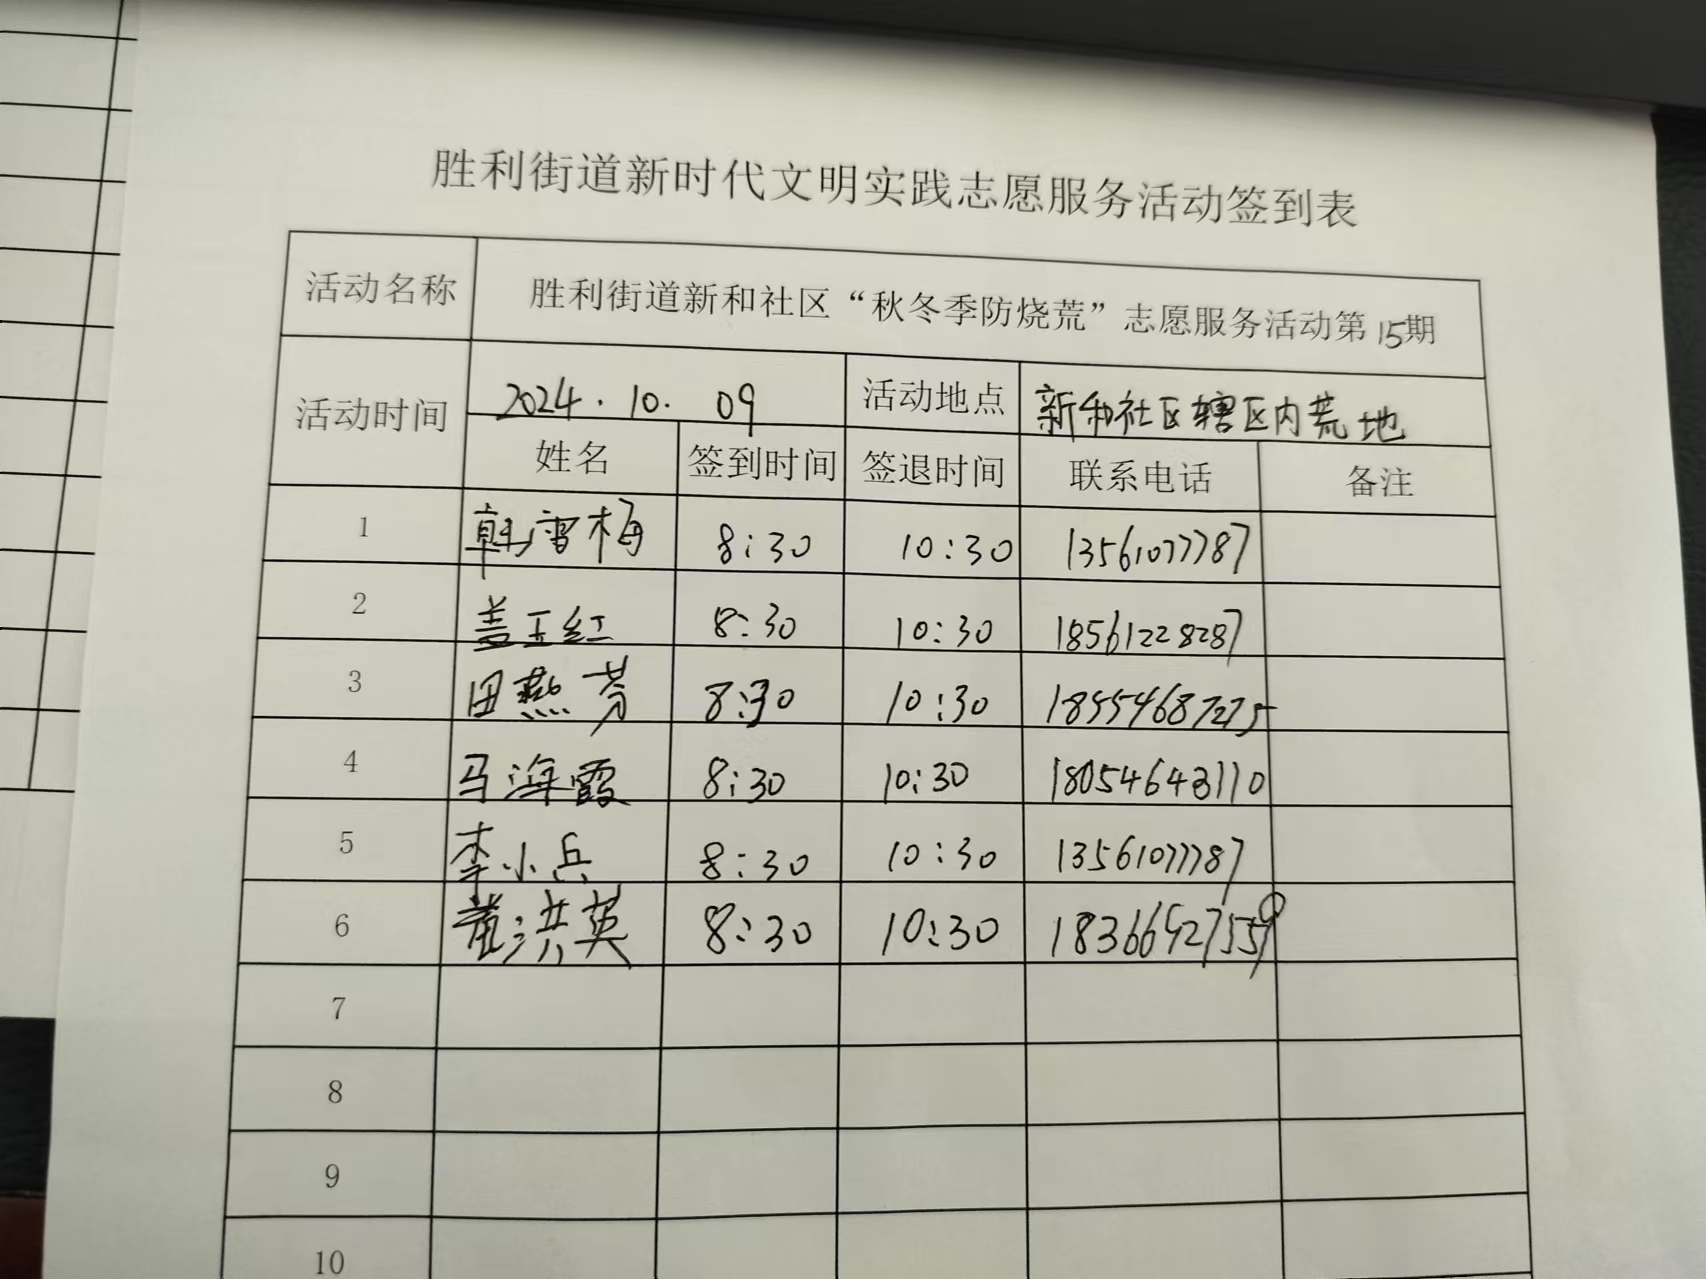 胜利街道新时代文明实践志愿服务活动签到表
活动名称 胜利街道新和社区“秋冬季防烧荒”志愿服务活动第15期
活动时间 2024.10.09 活动地点 新和社区辖区内荒地
姓名 签到时间 签退时间 联系电话 备注
1 韩雪梅 8:30 10:30 13561077787
2 盖玉红 8:30 10:30 18561228287
3 田燕芳 8:30 10:30 18554687275
4 马海霞 8:30 10:30 18054643110
5 李小兵 8:30 10:30 13561077787
6 董洪英 8:30 10:30 18366527559
7
8
9
10